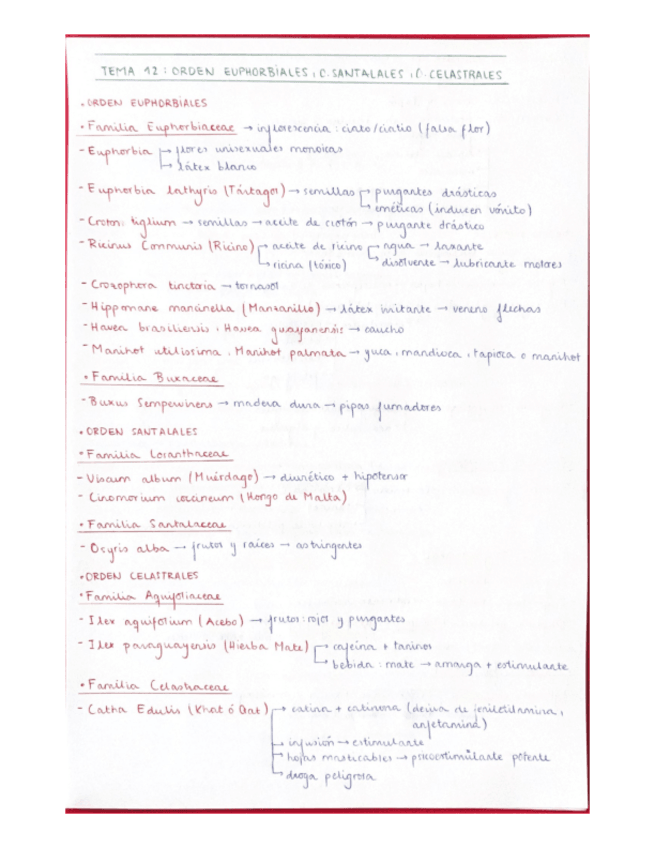 TEMA 12: ORDEN EUPHORBIALES, O. SANTALALES, O. CELASTRALES
• ORDEN EUPHORBIALES
• Familia Euphorbiaceae → inflorescencia: ciato/ciatio (falsa flor)
- Euphorbia → flores unisexuales monoicas
→ látex blanco
- Euphorbia lathyris (Tártago) → semillas → purgantes drásticos
→ eméticas (inducen vómito)
- Croton tiglium → semillas → aceite de crotón → purgante drástico
- Ricinus Communis (Ricino) → aceite de ricino → agua → laxante
→ ricina (tóxico) → disolvente → lubricante motores
- Crozophera tinctoria → tornasol
- Hippomane mancinella (Manzanillo) → látex irritante → veneno flechas
- Hevea brasiliensis, Hevea guayanensis → caucho
- Manihot utilissima, Manihot palmata → yuca, mandioca, tapioca o manihot
• Familia Buxaceae
- Buxus Sempervirens → madera dura → pipas fumadores
• ORDEN SANTALALES
• Familia Loranthaceae
- Viscum album (Muérdago) → diurético + hipotensor
- Cinomorium coccineum (Hongo de Malta)
• Familia Santalaceae
- Osyris alba → frutos y raíces → astringentes
• ORDEN CELASTRALES
• Familia Aquifoliaceae
- Ilex aquifolium (Acebo) → frutos: rojos y purgantes
- Ilex paraguayensis (Hierba Mate) → cafeína + taninos
→ bebida: mate → amarga + estimulante
• Familia Celastraceae
- Catha Edulis (Khat ó Qat) → catina + catinona (deriva de feniletilamina,
anfetamina)
→ infusión → estimulante
→ hojas masticables → psicoestimulante potente
→ droga peligrosa